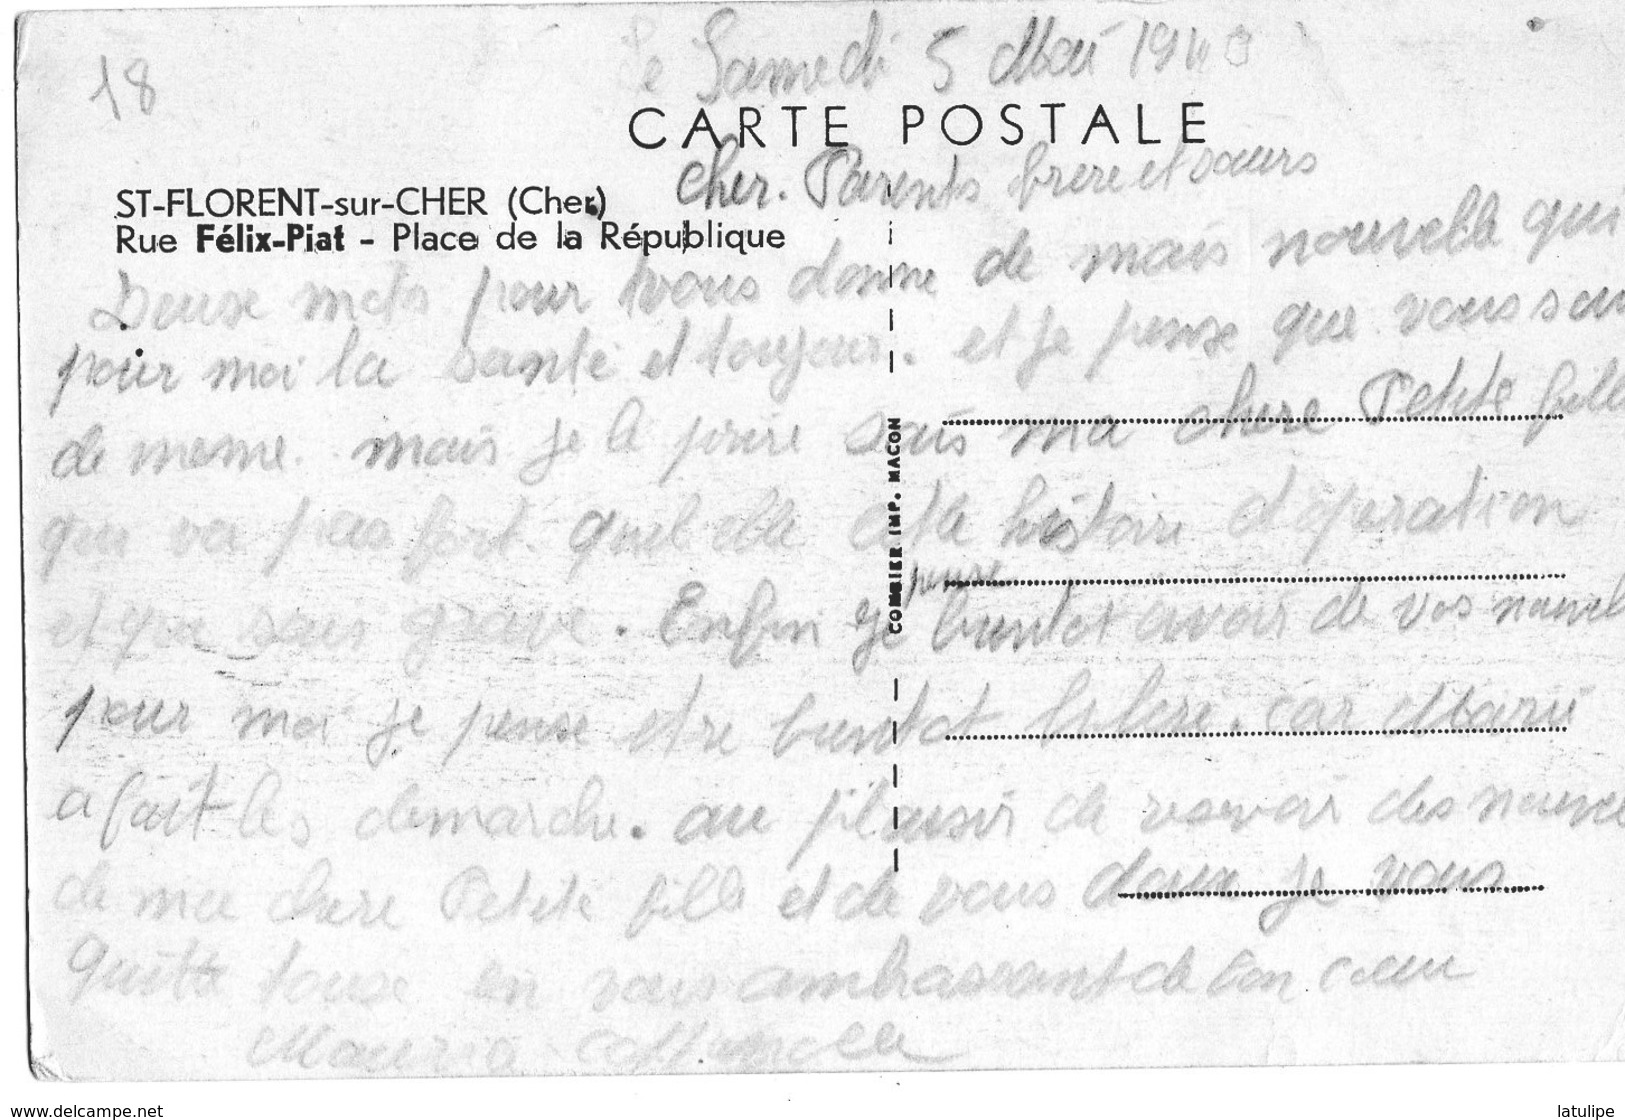 18
Le Samedi 5 Mai 1940
CARTE POSTALE
ST-FLORENT-sur-CHER (Cher)
Rue Félix-Piat - Place de la République
COMBIER IMP. MACON
Cher. Parents frere et sœurs
Deuse mots pour vous donne de mais nouvelle qui
pour moi la santé et toujour. et je pense que vous
de meme. mais je le ma chere Petite fille
que va pas fort. quel elle histoire d'operation
et grave. Enfin je pense bientot avoir de vos nouvel
pour moi je pense etre bientot libere. car Marie
a fait les demarche. au plaisir de resevoir des nouvel
de ma chere Petite fille et de vous doux je vous
quitte touse en vous ambrassant de bon cœur
www.delcampe.net
latulipe